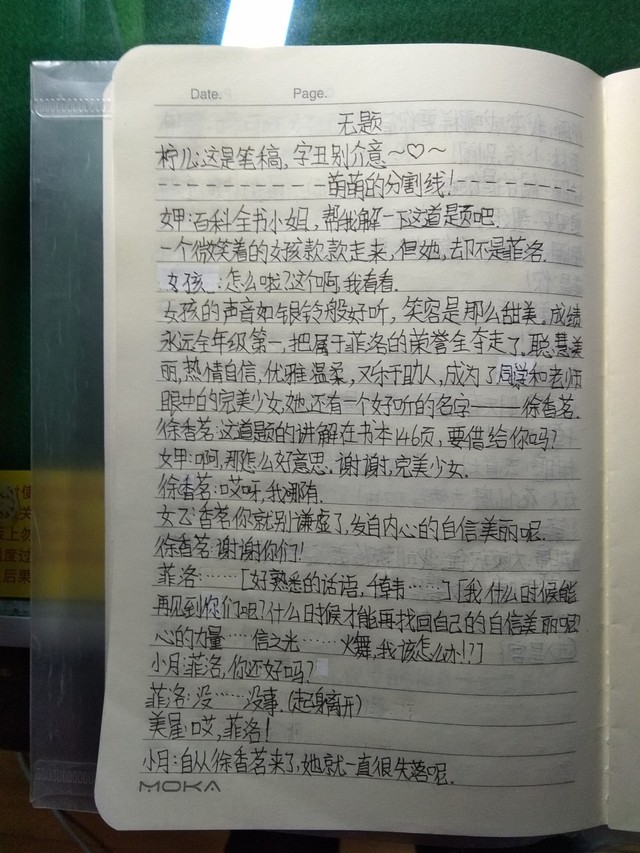 Date. Page.
无题
柠儿:这是笔稿,字丑别介意~♡~
----------萌萌的分割线!-------
女甲:百科全书小姐,帮我解一下这道是题吧.
一个微笑着的女孩款款走来,但她,却不是菲洛.
女孩:怎么啦?这个啊,我看看.
女孩的声音如银铃般好听,笑容是那么甜美。成绩
永远全年级第一,把属于菲洛的荣誉全夺走了,聪慧美
丽,热情自信,优雅温柔,又乐于助人,成为了同学和老师
眼中的完美少女,她还有一个好听的名字——徐香茗.
徐香茗:这道题的讲解在书本146页,要借给你吗?
女甲:啊,那怎么好意思.谢谢,完美少女.
徐香茗:哎呀,我哪有.
女乙:香茗你就别谦虚了,发自内心的自信美丽呢.
徐香茗:谢谢你们!
菲洛:……[好熟悉的话语,千韩……][我什么时候能
再见到你们呢?什么时候才能再找回自己的自信美丽呢?
心的力量……信之光……火舞,我该怎么办!?]
小月:菲洛,你还好吗?
菲洛:没……没事.(起身离开)
美星:哎,菲洛!
小月:自从徐香茗来了,她就一直很失落呢.
MOKA